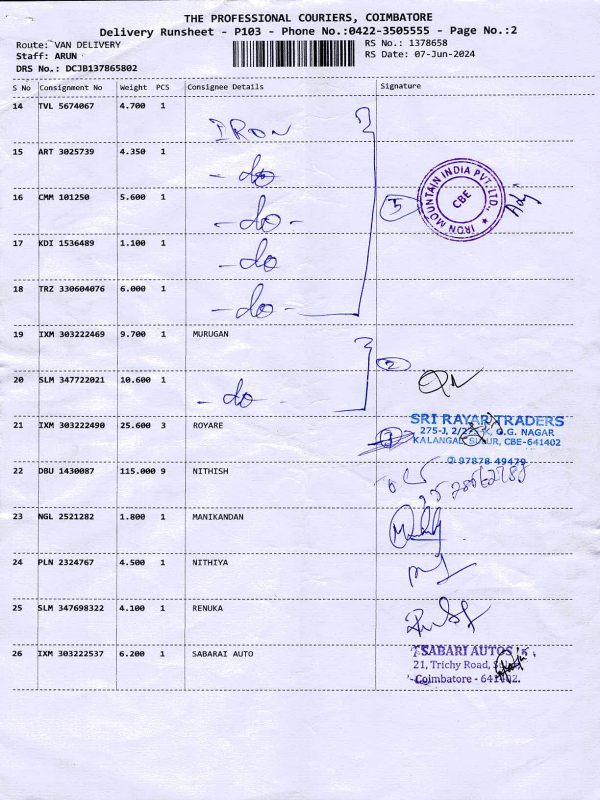 THE PROFESSIONAL COURIERS, COIMBATORE
Delivery Runsheet - P103 - Phone No.:0422-3505555 - Page No.:2
Route: VAN DELIVERY RS No.: 1378658
Staff: ARUN RS Date: 07-Jun-2024
DRS No.: DCJB137865802
S No Consignment No Weight PCS Consignee Details Signature
14 TVL 5674067 4.700 1
IRON
15 ART 3025739 4.350 1
- do
16 CMM 101250 5.600 1
- do -
5
IRON MOUNTAIN INDIA PVT. LTD., ★
CBE
17 KDI 1536489 1.100 1
- do
18 TRZ 330604076 6.000 1
- do -
19 IXM 303222469 9.700 1 MURUGAN
2
20 SLM 347722021 10.600 1
- do -
21 IXM 303222490 25.600 3 ROYARE
SRI RAYAR TRADERS
275-J, G.G. NAGAR
KALANGAL SULUR, CBE-641402
✆ 97878 49479
22 DBU 1430087 115.000 9 NITHISH
23 NGL 2521282 1.800 1 MANIKANDAN
24 PLN 2324767 4.500 1 NITHIYA
25 SLM 347698322 4.100 1 RENUKA
26 IXM 303222537 6.200 1 SABARAI AUTO
SABARI AUTOS
21, Trichy Road,
Coimbatore - 641402.